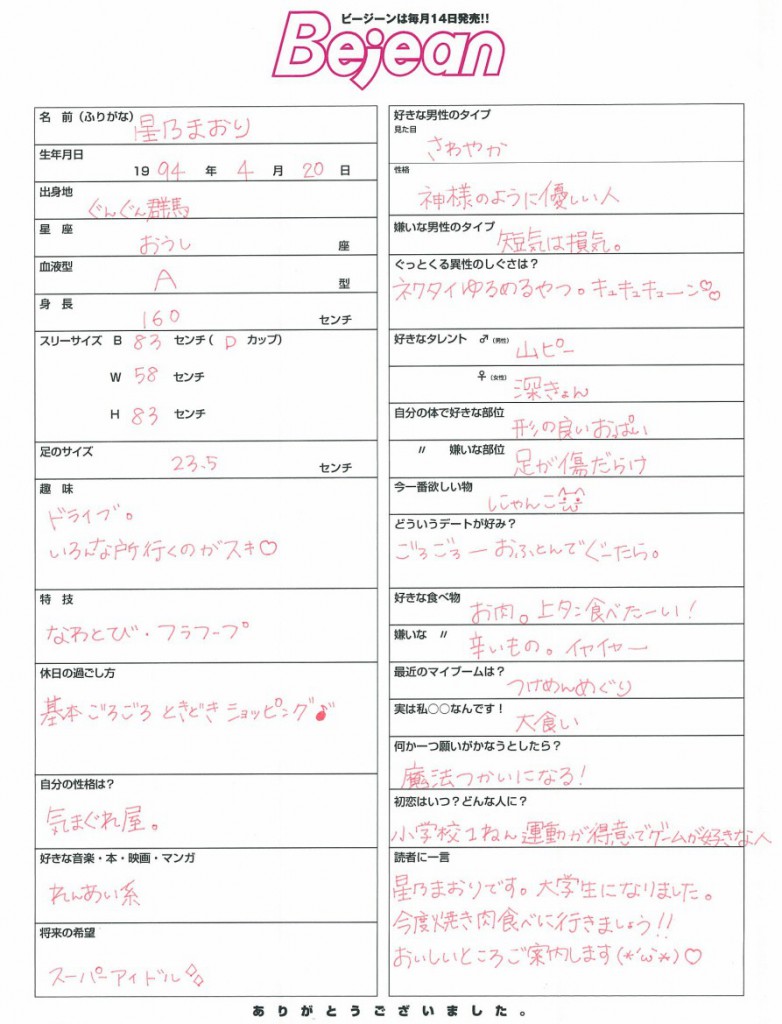 ビージーンは毎月14日発売!!
Bejean
名 前(ふりがな) 星乃まおり
生年月日
19 94 年 4 月 20 日
出身地
ぐんぐん群馬
星 座
おうし 座
血液型
A 型
身 長
160 センチ
スリーサイズ B 83 センチ( D カップ)
W 58 センチ
H 83 センチ
足のサイズ
23.5 センチ
趣 味
ドライブ。
いろんな所行くのがスキ♡
特 技
なわとび・フラフープ
休日の過ごし方
基本ごろごろ ときどき ショッピング♪
自分の性格は?
気まぐれ屋。
好きな音楽・本・映画・マンガ
れんあい系
将来の希望
スーパーアイドル
好きな男性のタイプ
見た目
さわやか
性格
神様のように優しい人
嫌いな男性のタイプ
短気は損気。
ぐっとくる異性のしぐさは?
ネクタイゆるめるやつ。キュキュキューン♡
好きなタレント ♂(男性) 山ピー
♀(女性) 深きょん
自分の体で好きな部位
形の良いおっぱい
〃 嫌いな部位
足が傷だらけ
今一番欲しい物
にゃんこ
どういうデートが好み?
ごろごろー おふとんでぐーたら。
好きな食べ物
お肉。上タン食べたーい!
嫌いな 〃
辛いもの。イヤイヤー
最近のマイブームは?
つけめんめぐり
実は私○○なんです!
大食い
何か一つ願いがかなうとしたら?
魔法つかいになる!
初恋はいつ?どんな人に?
小学校1ねん 運動が得意でゲームが好きな人
読者に一言
星乃まおりです。大学生になりました。
今度焼き肉食べに行きましょう!!
おいしいところご案内します(*´ω`*)♡
ありがとうございました。